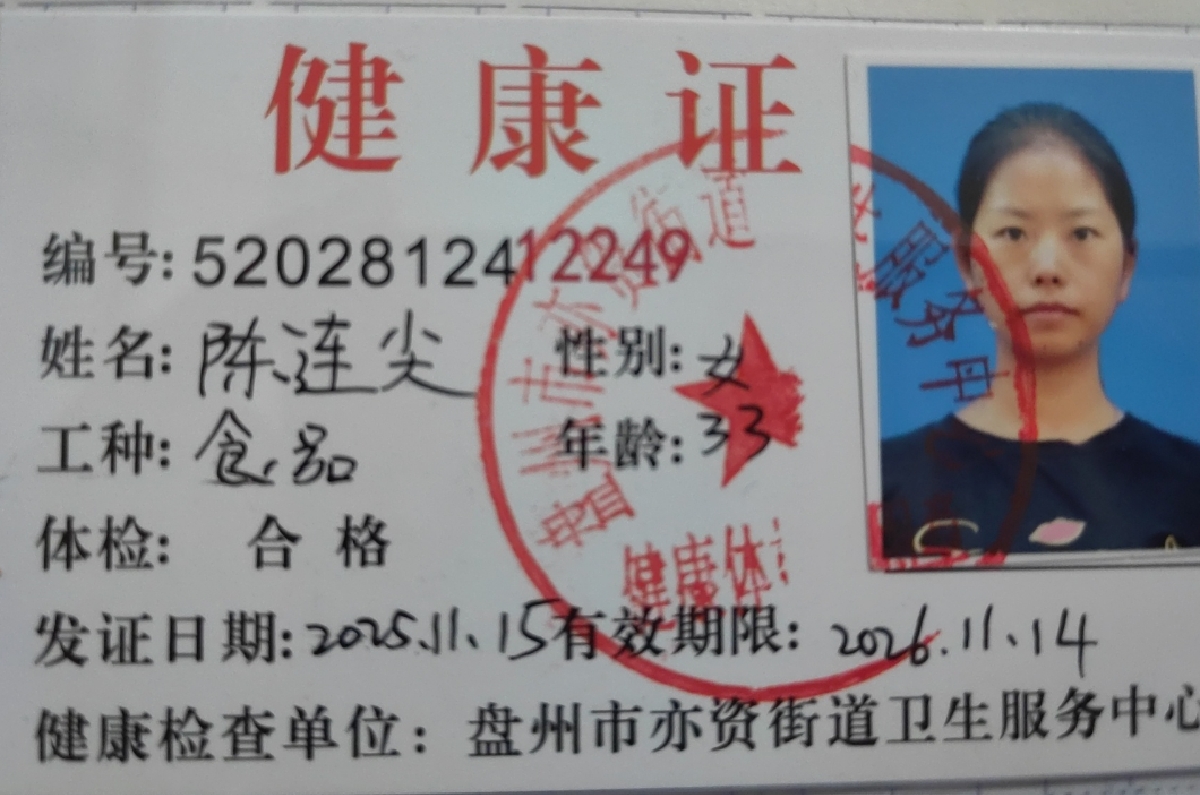 健康证
编号: 5202812412249
姓名: 陈连尖 性别: 女
工种: 食品 年龄: 33
体检: 合格
发证日期: 2025.11.15 有效期限: 2026.11.14
健康检查单位: 盘州市亦资街道卫生服务中心
盘州市亦资街道 服务中
健康体